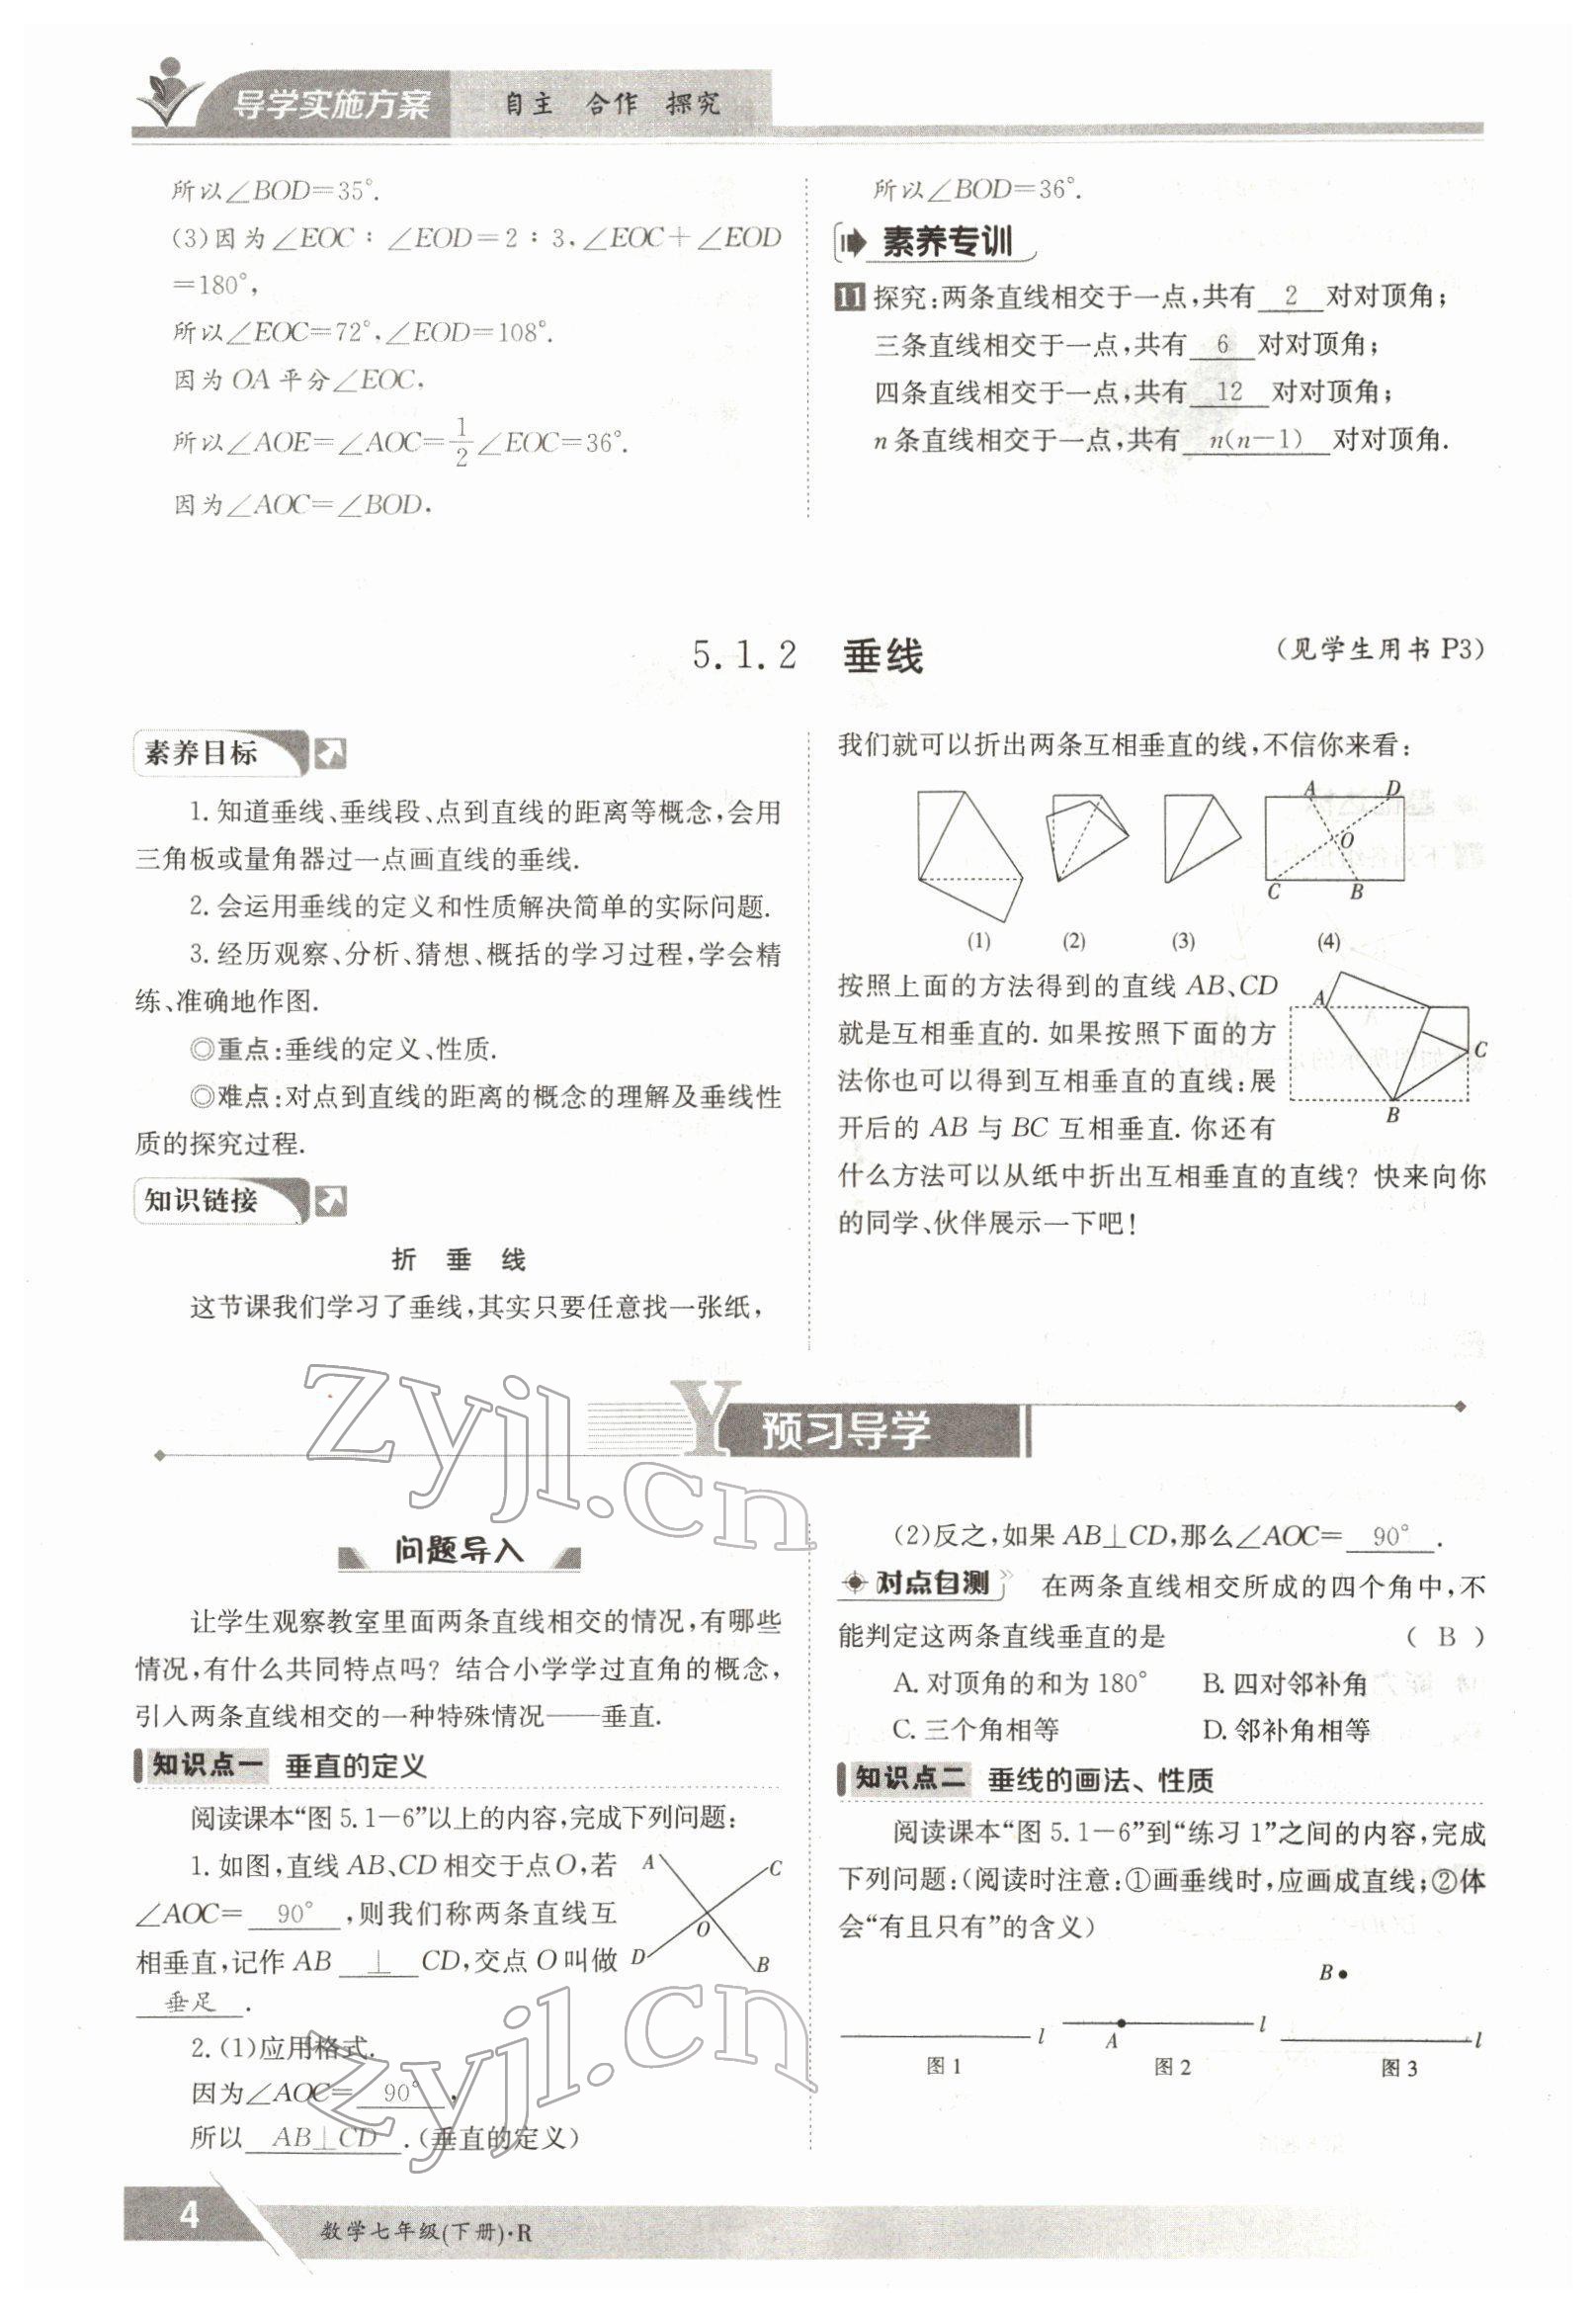 导学实施方案 自主 合作 探究
所以∠BOD=35°.
(3)因为∠EOC∶∠EOD=2∶3,∠EOC+∠EOD
=180°,
所以∠EOC=72°,∠EOD=108°.
因为OA平分∠EOC,
所以∠AOE=∠AOC=1/2∠EOC=36°.
因为∠AOC=∠BOD,
所以∠BOD=36°.
素养专训
11 探究:两条直线相交于一点,共有 2 对对顶角;
三条直线相交于一点,共有 6 对对顶角;
四条直线相交于一点,共有 12 对对顶角;
n条直线相交于一点,共有 n(n-1) 对对顶角.
5.1.2 垂线 (见学生用书P3)
素养目标
1.知道垂线、垂线段、点到直线的距离等概念,会用
三角板或量角器过一点画直线的垂线.
2.会运用垂线的定义和性质解决简单的实际问题.
3.经历观察、分析、猜想、概括的学习过程,学会精
练、准确地作图.
◎重点:垂线的定义、性质.
◎难点:对点到直线的距离的概念的理解及垂线性
质的探究过程.
知识链接
折 垂 线
这节课我们学习了垂线,其实只要任意找一张纸,
我们就可以折出两条互相垂直的线,不信你来看:
A D
O
C B
(1) (2) (3) (4)
按照上面的方法得到的直线AB、CD
就是互相垂直的.如果按照下面的方
法你也可以得到互相垂直的直线:展
开后的AB与BC互相垂直.你还有
什么方法可以从纸中折出互相垂直的直线?快来向你
的同学、伙伴展示一下吧!
A
C
B
Y 预习导学
问题导入
让学生观察教室里面两条直线相交的情况,有哪些
情况,有什么共同特点吗?结合小学学过直角的概念,
引入两条直线相交的一种特殊情况——垂直.
知识点一 垂直的定义
阅读课本“图5.1-6”以上的内容,完成下列问题:
1.如图,直线AB、CD相交于点O,若
∠AOC= 90° ,则我们称两条直线互
相垂直,记作AB ⊥ CD,交点O叫做
垂足 .
A C
O
D B
2.(1)应用格式.
因为∠AOC= 90° ,
所以 AB⊥CD .(垂直的定义)
(2)反之,如果AB⊥CD,那么∠AOC= 90° .
对点自测 在两条直线相交所成的四个角中,不
能判定这两条直线垂直的是 ( B )
A.对顶角的和为180° B.四对邻补角
C.三个角相等 D.邻补角相等
知识点二 垂线的画法、性质
阅读课本“图5.1-6”到“练习1”之间的内容,完成
下列问题:(阅读时注意:①画垂线时,应画成直线;②体
会“有且只有”的含义)
B
l A l l
图1 图2 图3
zyjl.cn
zyjl.cn
4 数学七年级(下册)·R